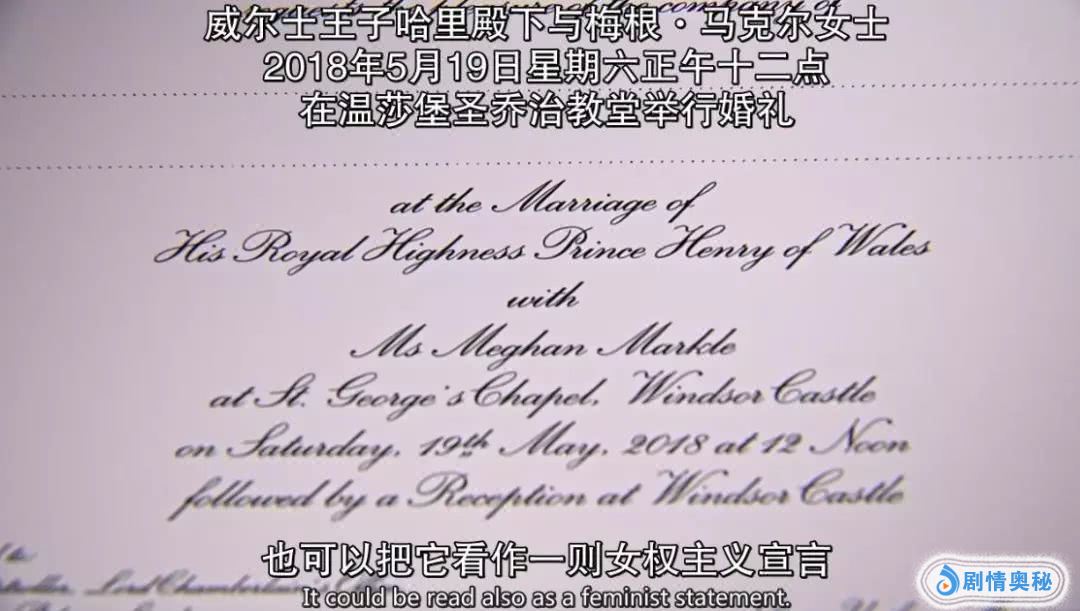 威尔士王子哈里殿下与梅根·马克尔女士
2018年5月19日星期六正午十二点
在温莎堡圣乔治教堂举行婚礼
at the Marriage of
His Royal Highness Prince Henry of Wales
with
Ms Meghan Markle
at St. George's Chapel, Windsor Castle
on Saturday, 19th May, 2018 at 12 Noon
followed by a Reception at Windsor Castle
也可以把它看作一则女权主义宣言
It could be read also as a feminist statement.
剧情奥秘